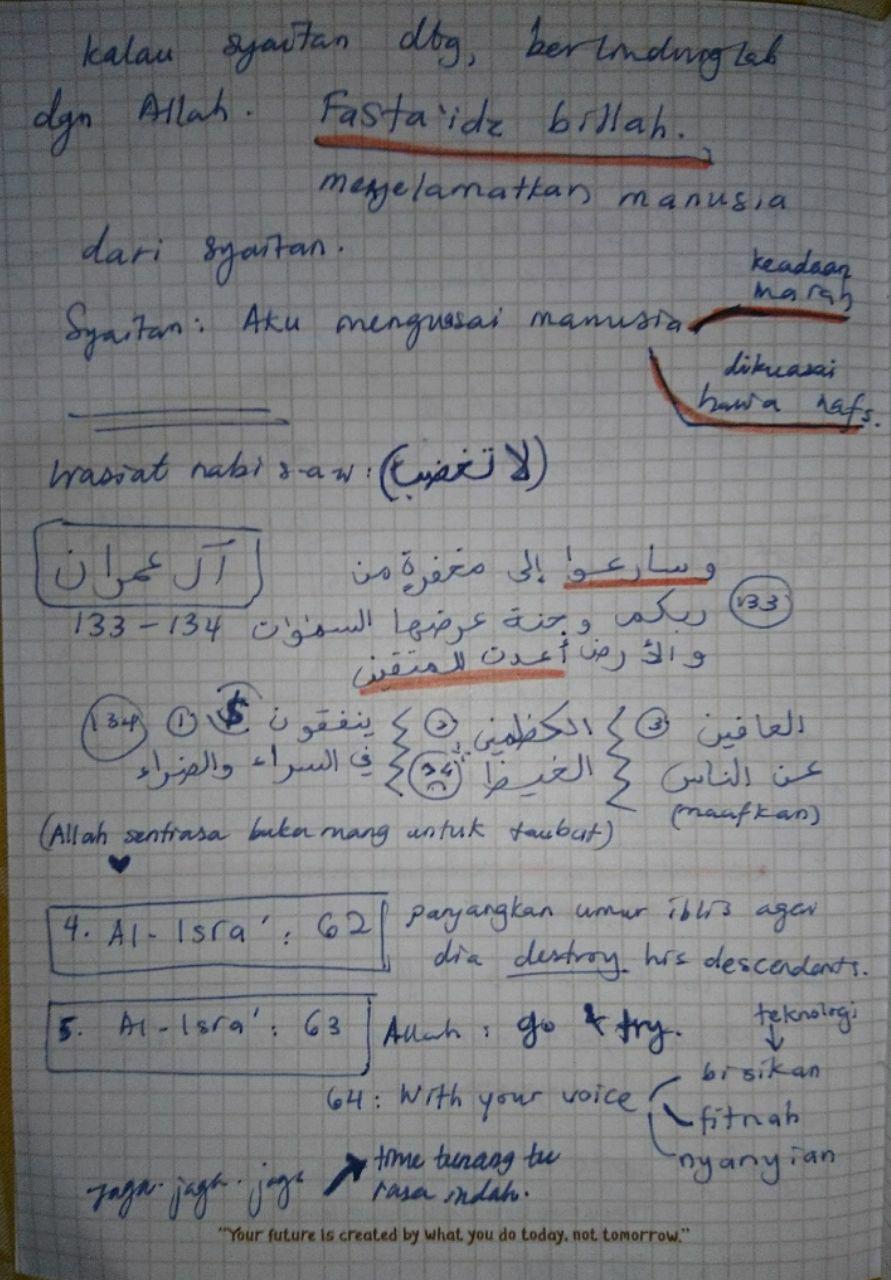 kalau syaitan dtg, berlindunglah
dgn Allah. Fasta'idz billah.
menyelamatkan manusia
dari syaitan.
Syaitan: Aku menguasai manusia
keadaan
marah
dikuasai
hawa nafs.
Wasiat nabi s.a.w: (لا تغضب)
آل عمران
133 – 134
وسارعوا إلى مغفرة من
133
ربكم وجنة عرضها السموات
والأرض أعدت للمتقين
134
① ينفقون $
في السراء والضراء
② الكظمين
الغيظ
③ العافين
عن الناس
(maafkan)
(Allah sentiasa buka ruang untuk taubat)
4. Al-Isra': 62
panjangkan umur iblis agar
dia destroy his descendents.
5. Al-Isra': 63
Allah: go & try.
teknologi
64: With your voice
bisikan
fitnah
nyanyian
jaga. jaga. jaga
time tunang tu
rasa indah.
"Your future is created by what you do today, not tomorrow."